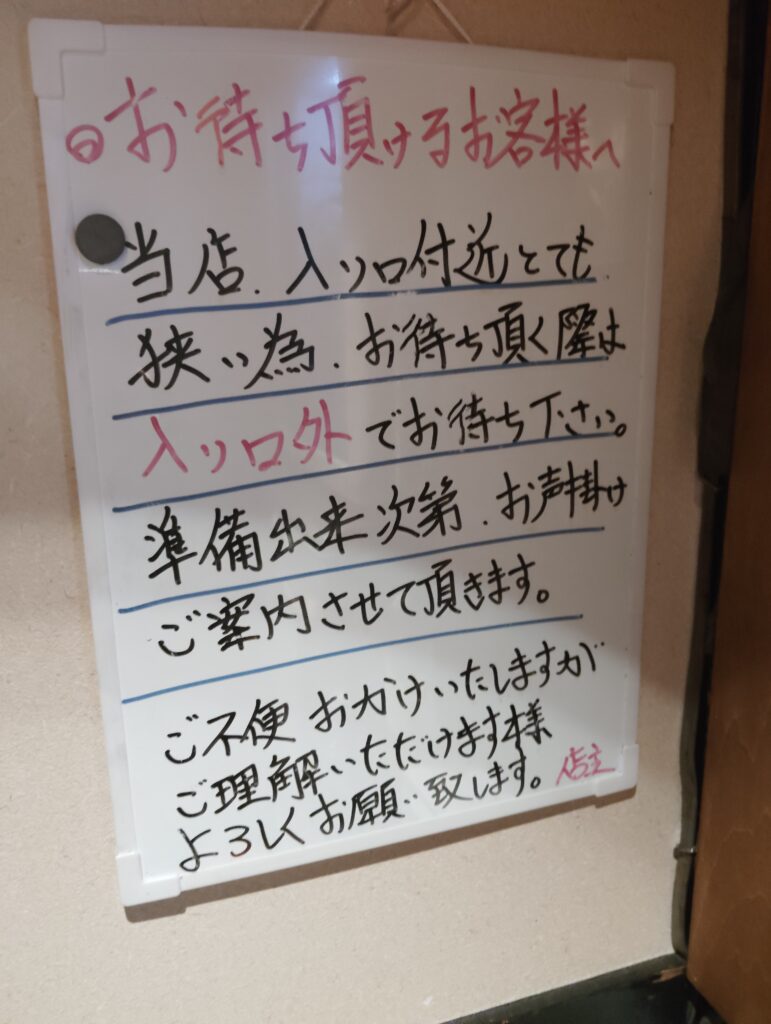 お待ち頂けるお客様へ
当店、入り口付近とても
狭い為、お待ち頂く際は
入り口外でお待ち下さい。
準備出来次第、お声掛け
ご案内させて頂きます。
ご不便おかけいたしますが
ご理解いただけます様
よろしくお願い致します。 店主